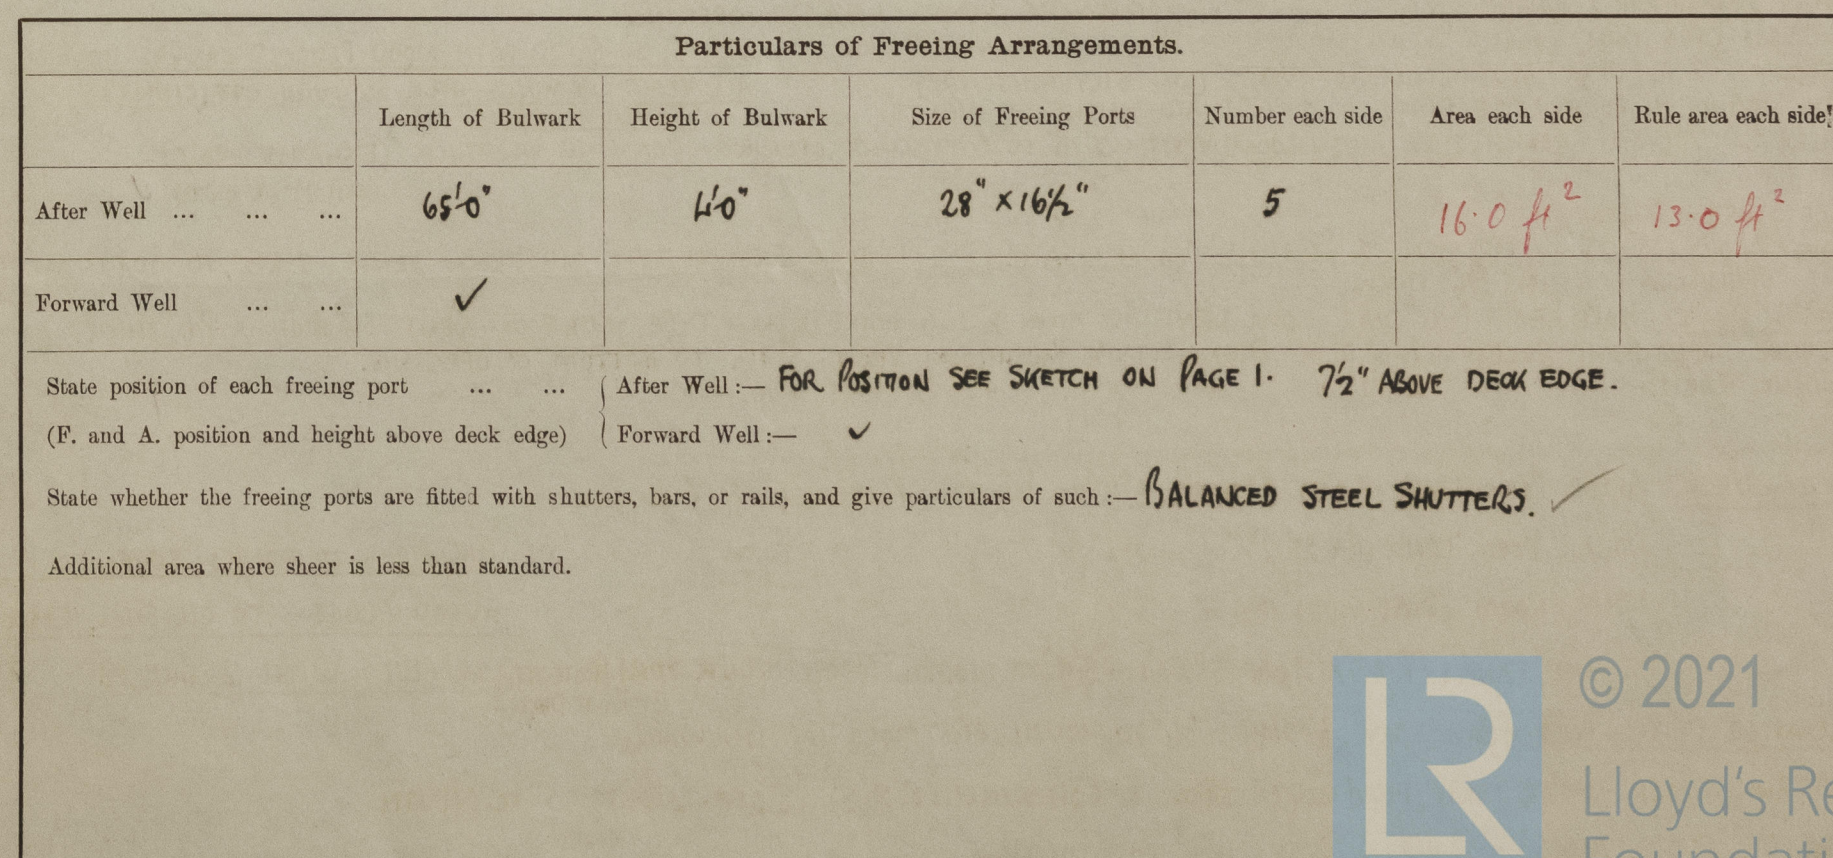 Particulars of Freeing Arrangements.
Length of Bulwark Height of Bulwark Size of Freeing Ports Number each side Area each side Rule area each side
After Well ... ... ... 65'-0" 4'-0" 28" × 16½" 5 16.0 ft² 13.0 ft²
Forward Well ... ... ✓
State position of each freeing port ... ... After Well :— FOR POSITION SEE SKETCH ON PAGE 1. 7½" ABOVE DECK EDGE.
(F. and A. position and height above deck edge) Forward Well :— ✓
State whether the freeing ports are fitted with shutters, bars, or rails, and give particulars of such :— BALANCED STEEL SHUTTERS. ✓
Additional area where sheer is less than standard.
LR © 2021
Lloyd's